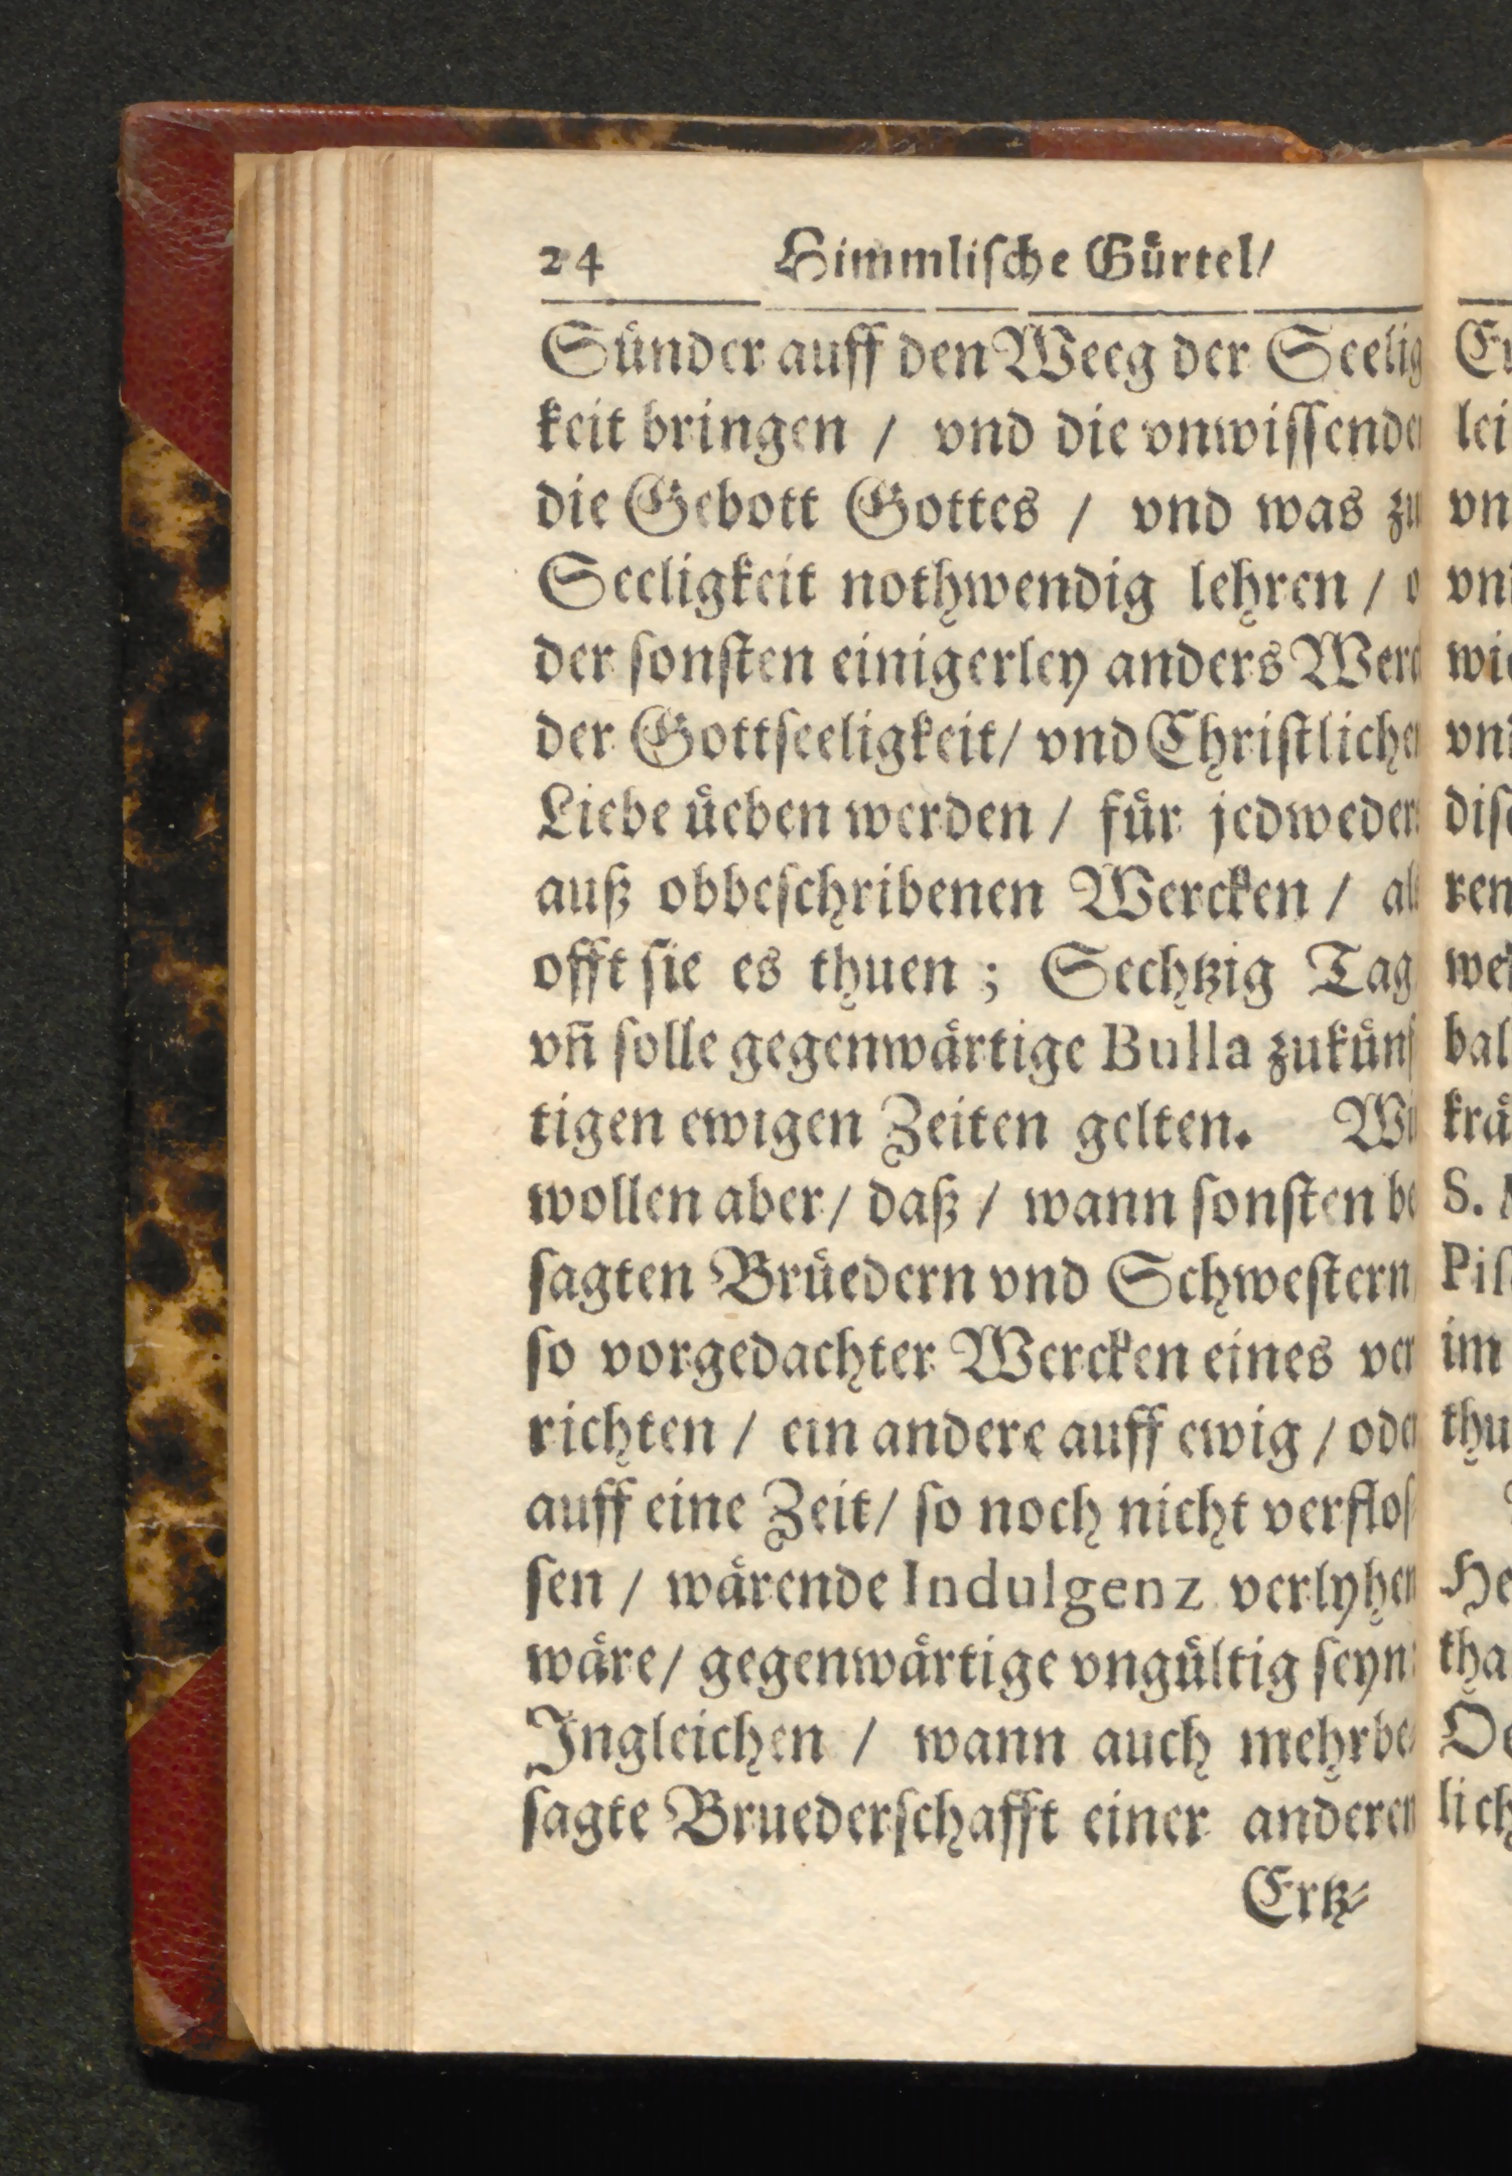 24 Himmlische Gürtel/
Sünder auff den Weeg der Seelig
keit bringen / vnd die vnwissende
die Gebott Gottes / vnd was zu
Seeligkeit nothwendig lehren / o
der sonsten einigerley anders Werc
der Gottseeligkeit/ vnd Christliche
Liebe üeben werden / für jedweder
auß obbeschribenen Wercken / als
offt sie es thuen ; Sechtzig Tag
vn̄ solle gegenwärtige Bulla zukünf
tigen ewigen Zeiten gelten. Wi
wollen aber/ daß / wann sonsten be
sagten Brüedern vnd Schwestern
so vorgedachter Wercken eines ver
richten / ein andere auff ewig / oder
auff eine Zeit/ so noch nicht verflos-
sen / wärende Indulgenz verlyhen
wäre/ gegenwärtige vngültig seyn:
Jngleichen / wann auch mehrbe-
sagte Bruederschafft einer anderen
Ertz-